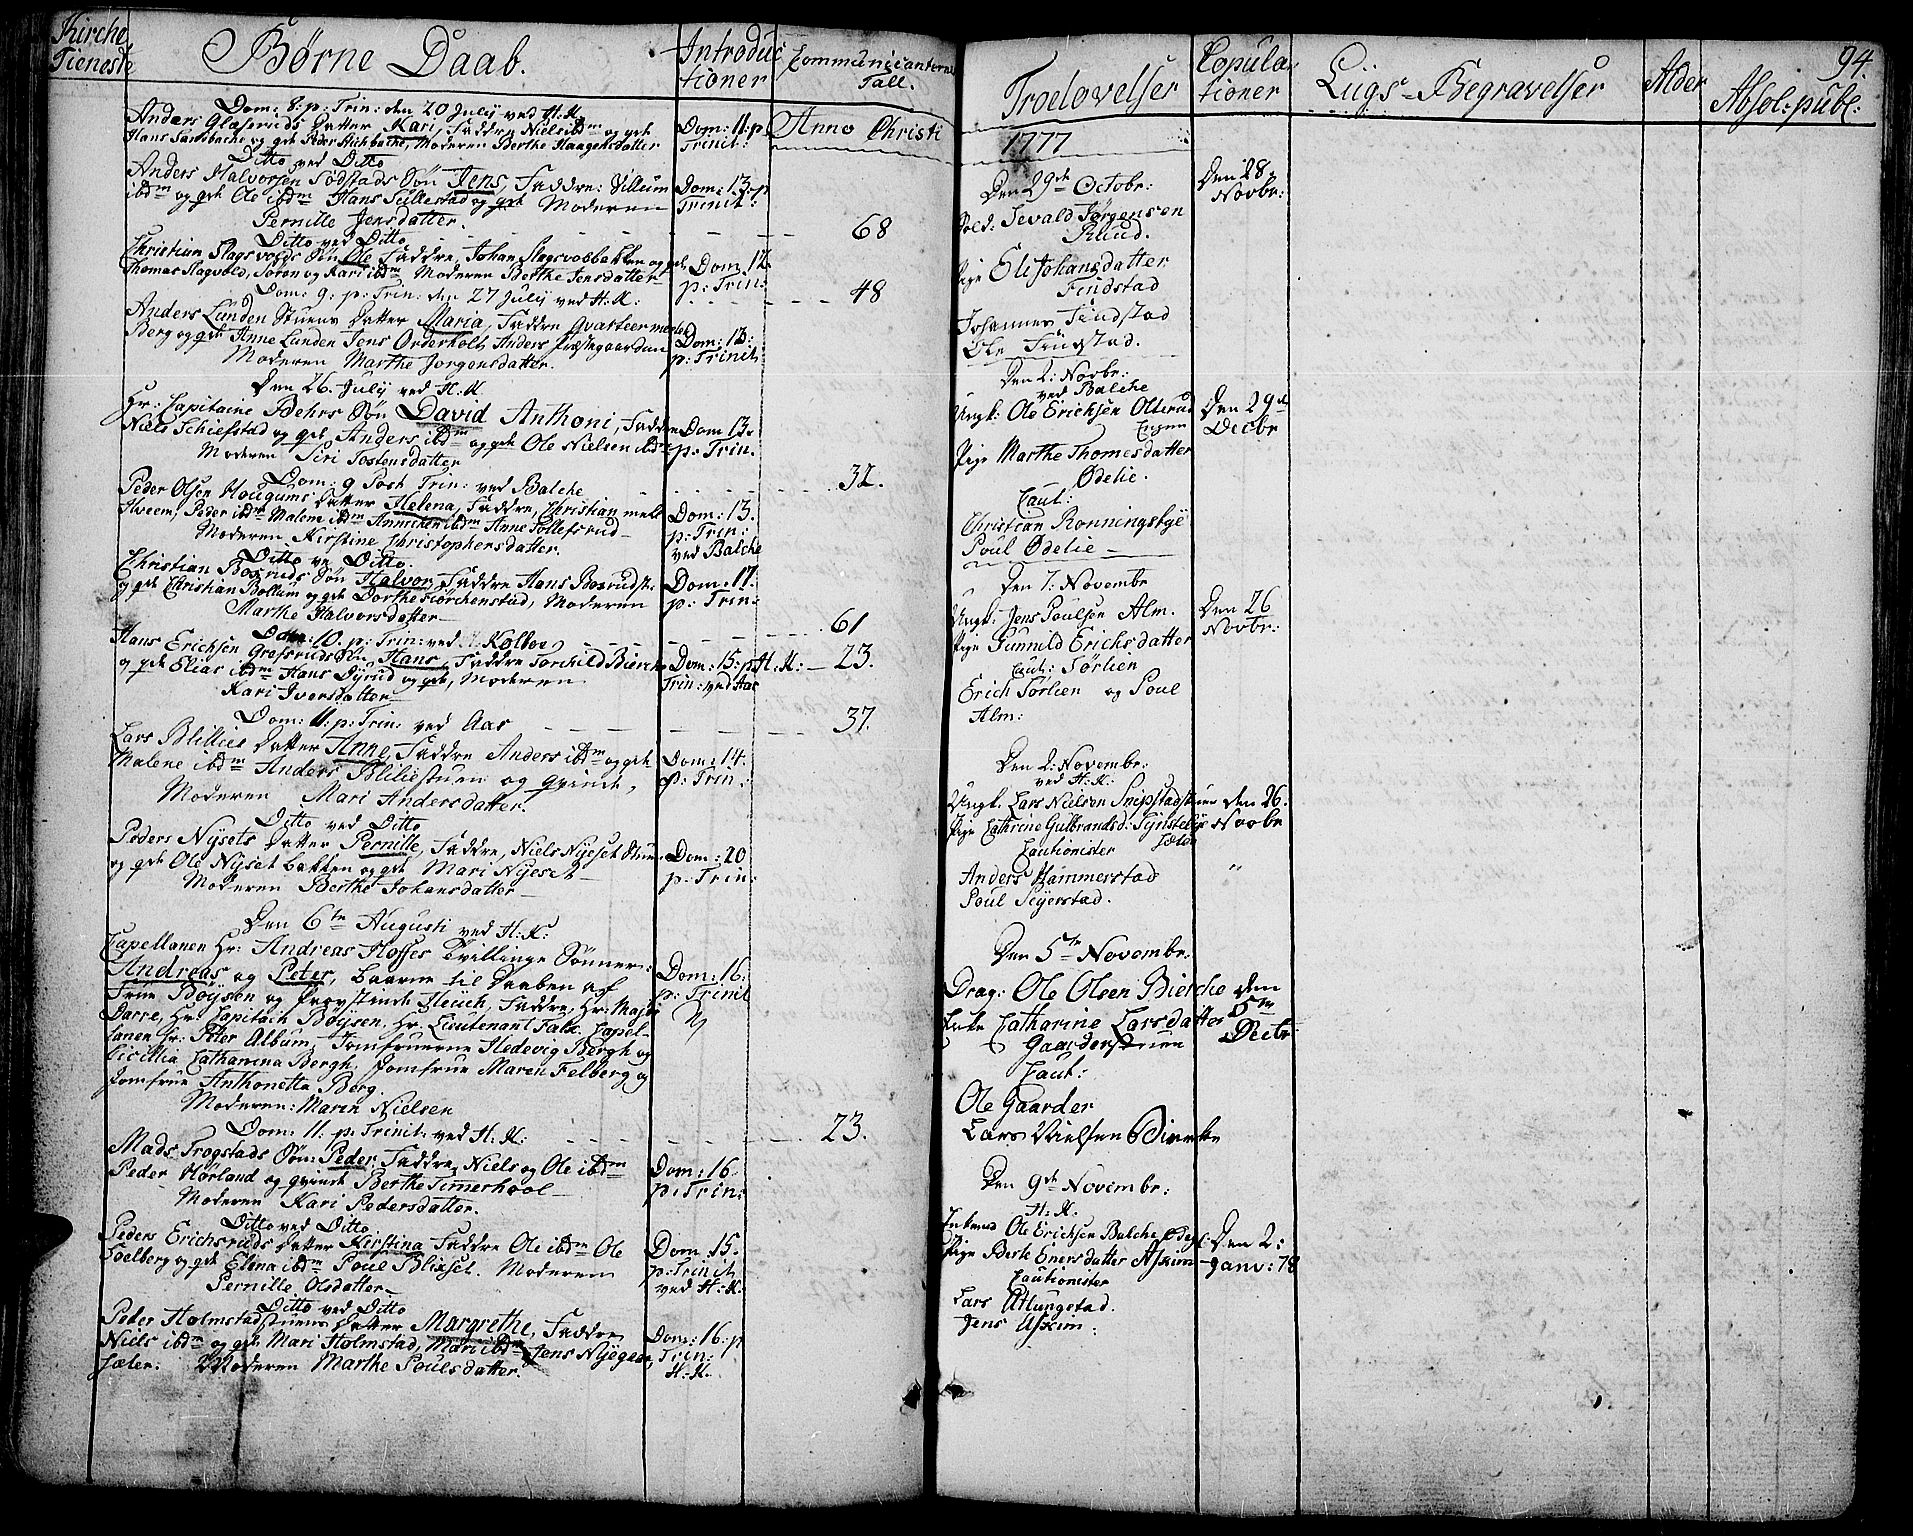 Kirche
Tieneste
Børne Daab.
Introduc
tioner
Communicanternes
Tall.
Dom: 8: p: Trin: den 20 July ved H: K:
Anders Glæseruds Datter Kari, Faddre Niels ibdm og gvt
Hans Sandbache og gvt Peder Hichbache, Moderen Berthe Haagensdatter
Dom: 11: p.
Trinit:
Anno Christi
Ditto ved Ditto
Anders Halvorsen Sodstads Søn Jens, Faddre: Villum
ibdm og gvt Ole ibdm Hans Sullestad og gvt Moderen
Pernille Jonsdatter.
Dom: 13: p
Trinit:
68
Ditto ved Ditto
Christian Slagsvolds Søn Ole Faddre, Johan Slagsvolbekken og gvt
Thomas Slagvold, Søren og Kari ibdm Moderen Berthe Jensdatter
Dom. 12.
p: Trin:
48
Dom: 9: p: Trin: den 27 July ved H: K:
Anders Lunden Stuens Datter Maria, Faddre Qvarteermester
Berg og gvt Anne Lunden Jens Orderholt Anders Præstegaarden
Moderen Marthe Jorgensdatter.
Dom: 13:
p: Trinit:
Den 26. July ved H: K
Hr: Capitaine Behrs Søn David Anthoni, Faddre
Niels Schiefstad og gvt Anders ibdm og gvt Ole Nielsen ibdm
Moderen Siri Tostensdatter
Dom 13:
p: Trin.
Dom: 9 Post Trin: ved Balche
32.
Peder Olsen Hougums Datter Helena, Faddre, Christian mell
Hveem, Peder ibdm Malene ibdm Annichen ibdm Anne Tollefsrud
Moderen Kirstine Christophersdatter.
Dom: 13.
p: Trin:
ved Balche
Ditto ved Ditto
Christian Bosruds Søn Halvor, Faddre Hans Bosrudst.
og gvt Christian Bollum og gvt Dorthe Tørchenstad, Moderen
Marthe Halvorsdatter
Dom: 17:
p: Trin:
61
Dom: 10. p: Trin: ved Kolboe
Hans Erichsen Grøfsruds Søn Hans, Faddre Torchild Bierche
og gvt Elias ibdm Hans Dyrud og gvt, Moderen
Kari Iversdatter
Dom: 15: p
Trin: ved Aas
H: K: 23.
Dom: 11: p: Trin: ved Aas
37.
Lars Blilies Datter Anne, Faddre Anders ibdm og gvt
Malene ibdm Anders Bliliestuen og qvinde,
Moderen Mari Andersdatter.
Dom: 14.
p: Trin:
Ditto ved Ditto
Peders Nysets Datter Pernille, Faddre, Niels Nyeset Stuen
og gvt Ole Nyset bakken og gvt Mari Nyeset
Moderen Berthe Johansdatter
Dom: 20
p: Trin:
Den 6te Augusti ved H: K:
Capellanen Hr: Andreas Hoffes Tvillinge Sønner:
Andreas og Peter, baarne til Daaben af
Frue Bøysen og Provstinde Fleich, Faddre, Hr: Major
Darre, Hr: Capitain Bøysen, Hr: Lieutenant Falk, Capel-
lanen Hr: Peter Album, Jomfruerne Hedevig Bergh og
Cicillia Catharina Bergh, Jomfrue Maren Felberg og
Jomfrue Anthonetta Berg.
Moderen: Maren Nielsen
Dom: 16:
p: Trinit
Dom: 11. p: Trinit: ved H: K:
23.
Mads Trogstads Søn: Peder, Faddre, Niels og Ole ibdm
Peder Hørland og qvinde Berthe Timerhool
Moderen Kari Pedersdatter.
Dom: 16.
p: Trin:
Ditto ved Ditto
Peders Erichsruds Datter Kirstina Faddre Ole ibdm Ole
Soelberg og gvt Elena ibdm Poul Blixset. Moderen
Pernille Olsdatter
Dom 15.
p: Trinit
ved H: K.
Ditto ved Ditto
Peder Holmstadstuens Datter Margrethe, Faddre
Niels ibdm og gvt Mari Holmstad, Mari ibdm Jens Nyegaar
Moderen Marthe Poulsdatter.
Dom: 16: p
Trin:
H: K.
94.
Troelovelser
Copula
tioner
Liigs-Begravelser
Alder
Absol: publ:
1777
Den 29de Octobr:
Sold: Sevald Jørgensen
Ruud.
Pige Eli Johansdatter
Findstad
Johannes Findstad
Ole Findstad.
Den 28:
Novbr:
Den 2: Novbr:
ved Balche
Ungk: Ole Erichsen Olterud
Engen
Pige Marthe Thomesdatter
Ødelie.
Caut:
Christian Ronningsbye
Poul Ødelie
Den 29de
Decbr
Den 7. Novembr
Ungk: Jens Poulsen Alm.
Pige Gunnild Erichsdatter
Caut: Sørlien
Erich Sørlien og Poul
Alm:
Den 26
Novbr:
Den 2: Novembr:
ved H: K:
Ungk. Lars Nielsen Snipstadstuen
Pige Cathrine Gulbrandsd: Synstelye
Cautionister
Anders Hammerstad
Poul Seyerstad.
den 26.
Novbr
Den 5te Novembr.
Drag: Ole Olsen Bierche
Enke Catharine Larsdatter
Gaarderstuen
Caut:
Ole Gaarder
Lars Nielsen Bierche
den
5te
Decbr
Den 9de Novembr:
H: K.
Enkemd Ole Erichsen Balche
Pige Berte Enersdatter Askim
Cautionister
Lars Atlungstad.
Jens Askim.
Den 2:
Janv: 78